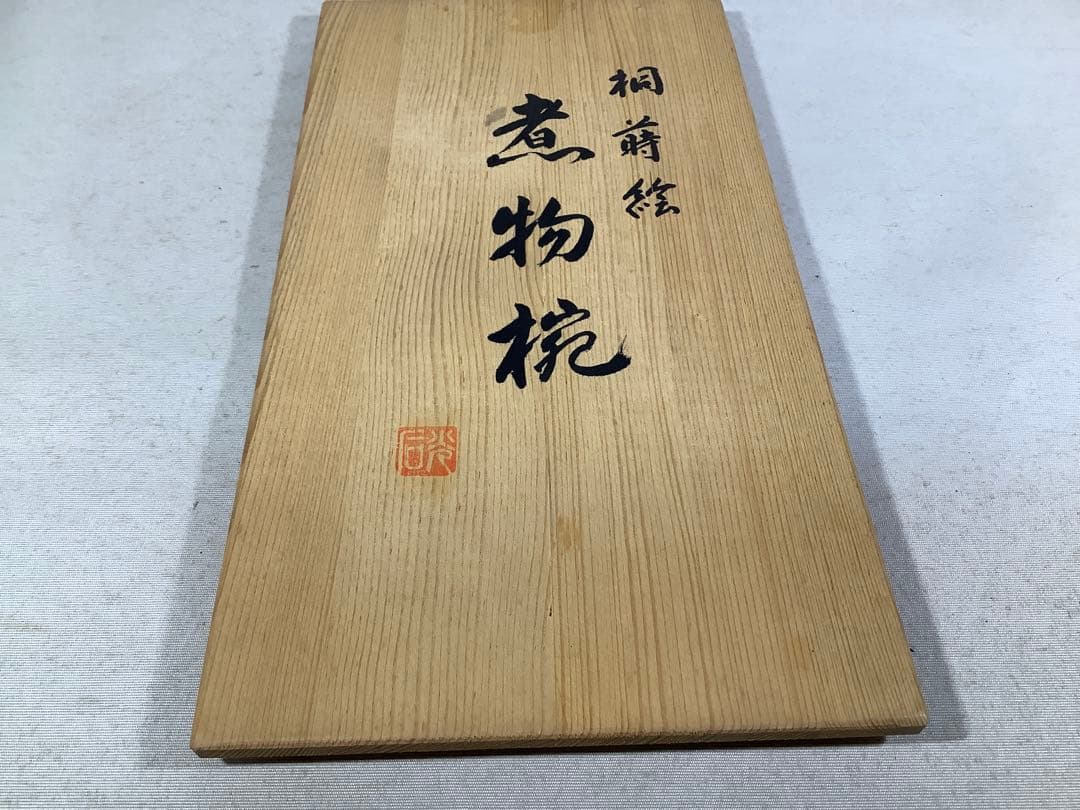 桐蒔絵
煮物椀